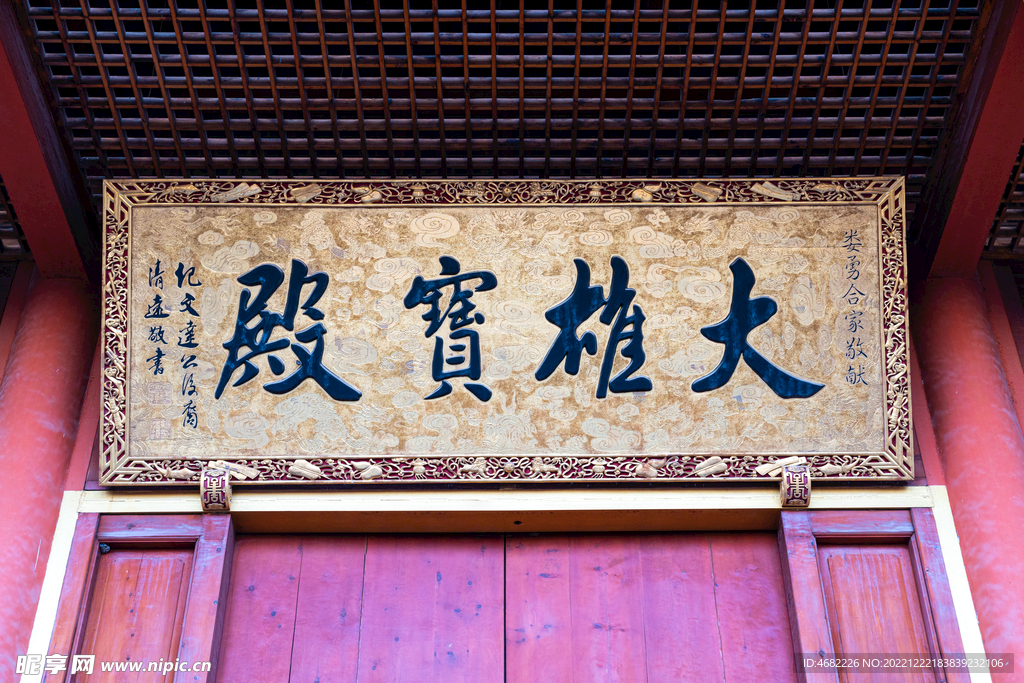 大雄寶殿
娄勇合家敬献
纪文達公後裔
清遠敬書
昵享网 www.nipic.cn
ID:4682226 NO:20221222183839232106